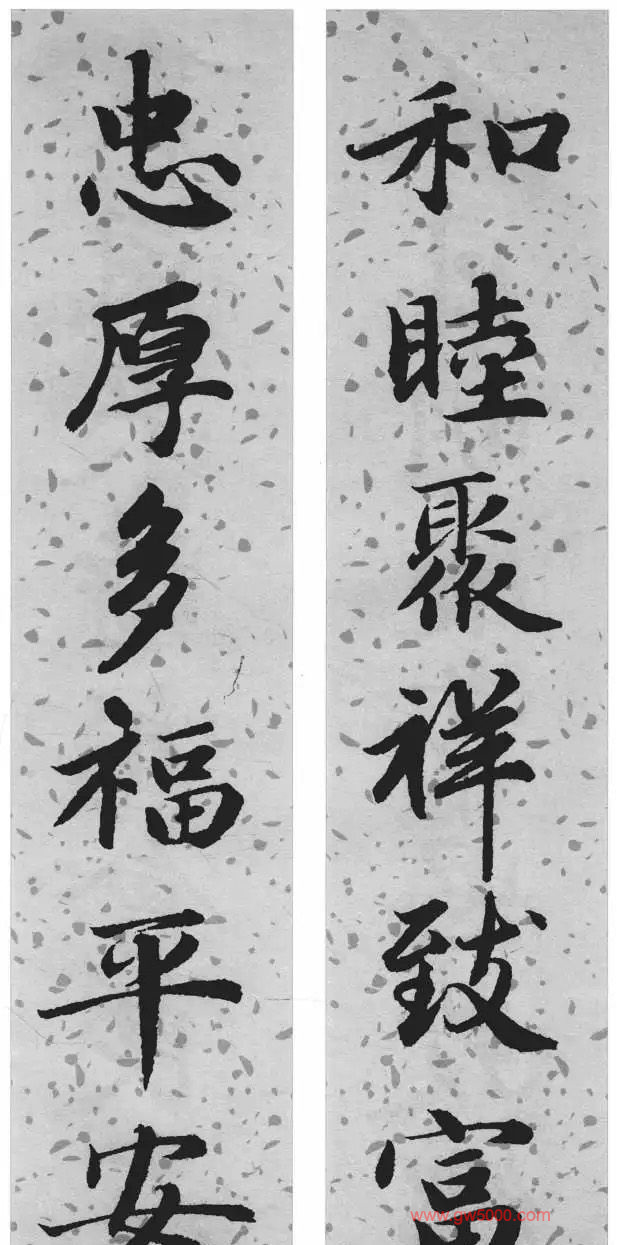 和睦聚祥致富
忠厚多福平安
www.gw5000.com